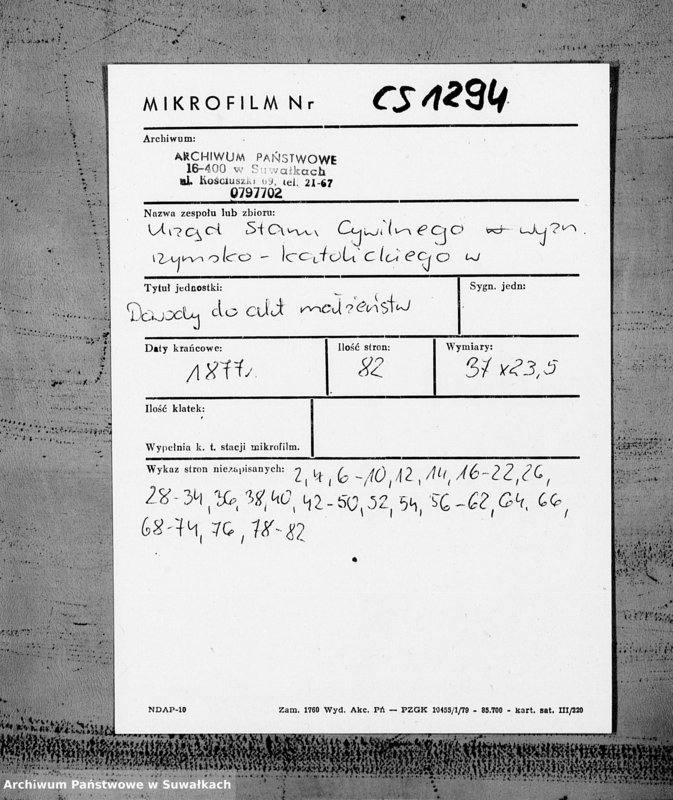 MIKROFILM Nr CS 1294
Archiwum:
ARCHIWUM PAŃSTWOWE
16-400 w Suwałkach
ul. Kościuszki 69, tel. 21-67
0797702
Nazwa zespołu lub zbioru:
Urząd Stanu Cywilnego w wyzn.
rzymsko-katolickiego w
Tytuł jednostki:
Sygn. jedn:
Dowody do akt małżeństw
Daty krańcowe:
Ilość stron:
Wymiary:
1877r.
82
37 x 23,5
Ilość klatek:
Wypełnia k. t. stacji mikrofilm.
Wykaz stron niezapisanych: 2, 4, 6-10, 12, 14, 16-22, 26,
28-34, 36, 38, 40, 42-50, 52, 54, 56-62, 64. 66,
68-74, 76, 78-82
NDAP-10
Zam. 1760 Wyd. Akc. Pń — PZGK 10455/1/79 - 85.700 - kart. sat. III/220
Archiwum Państwowe w Suwałkach